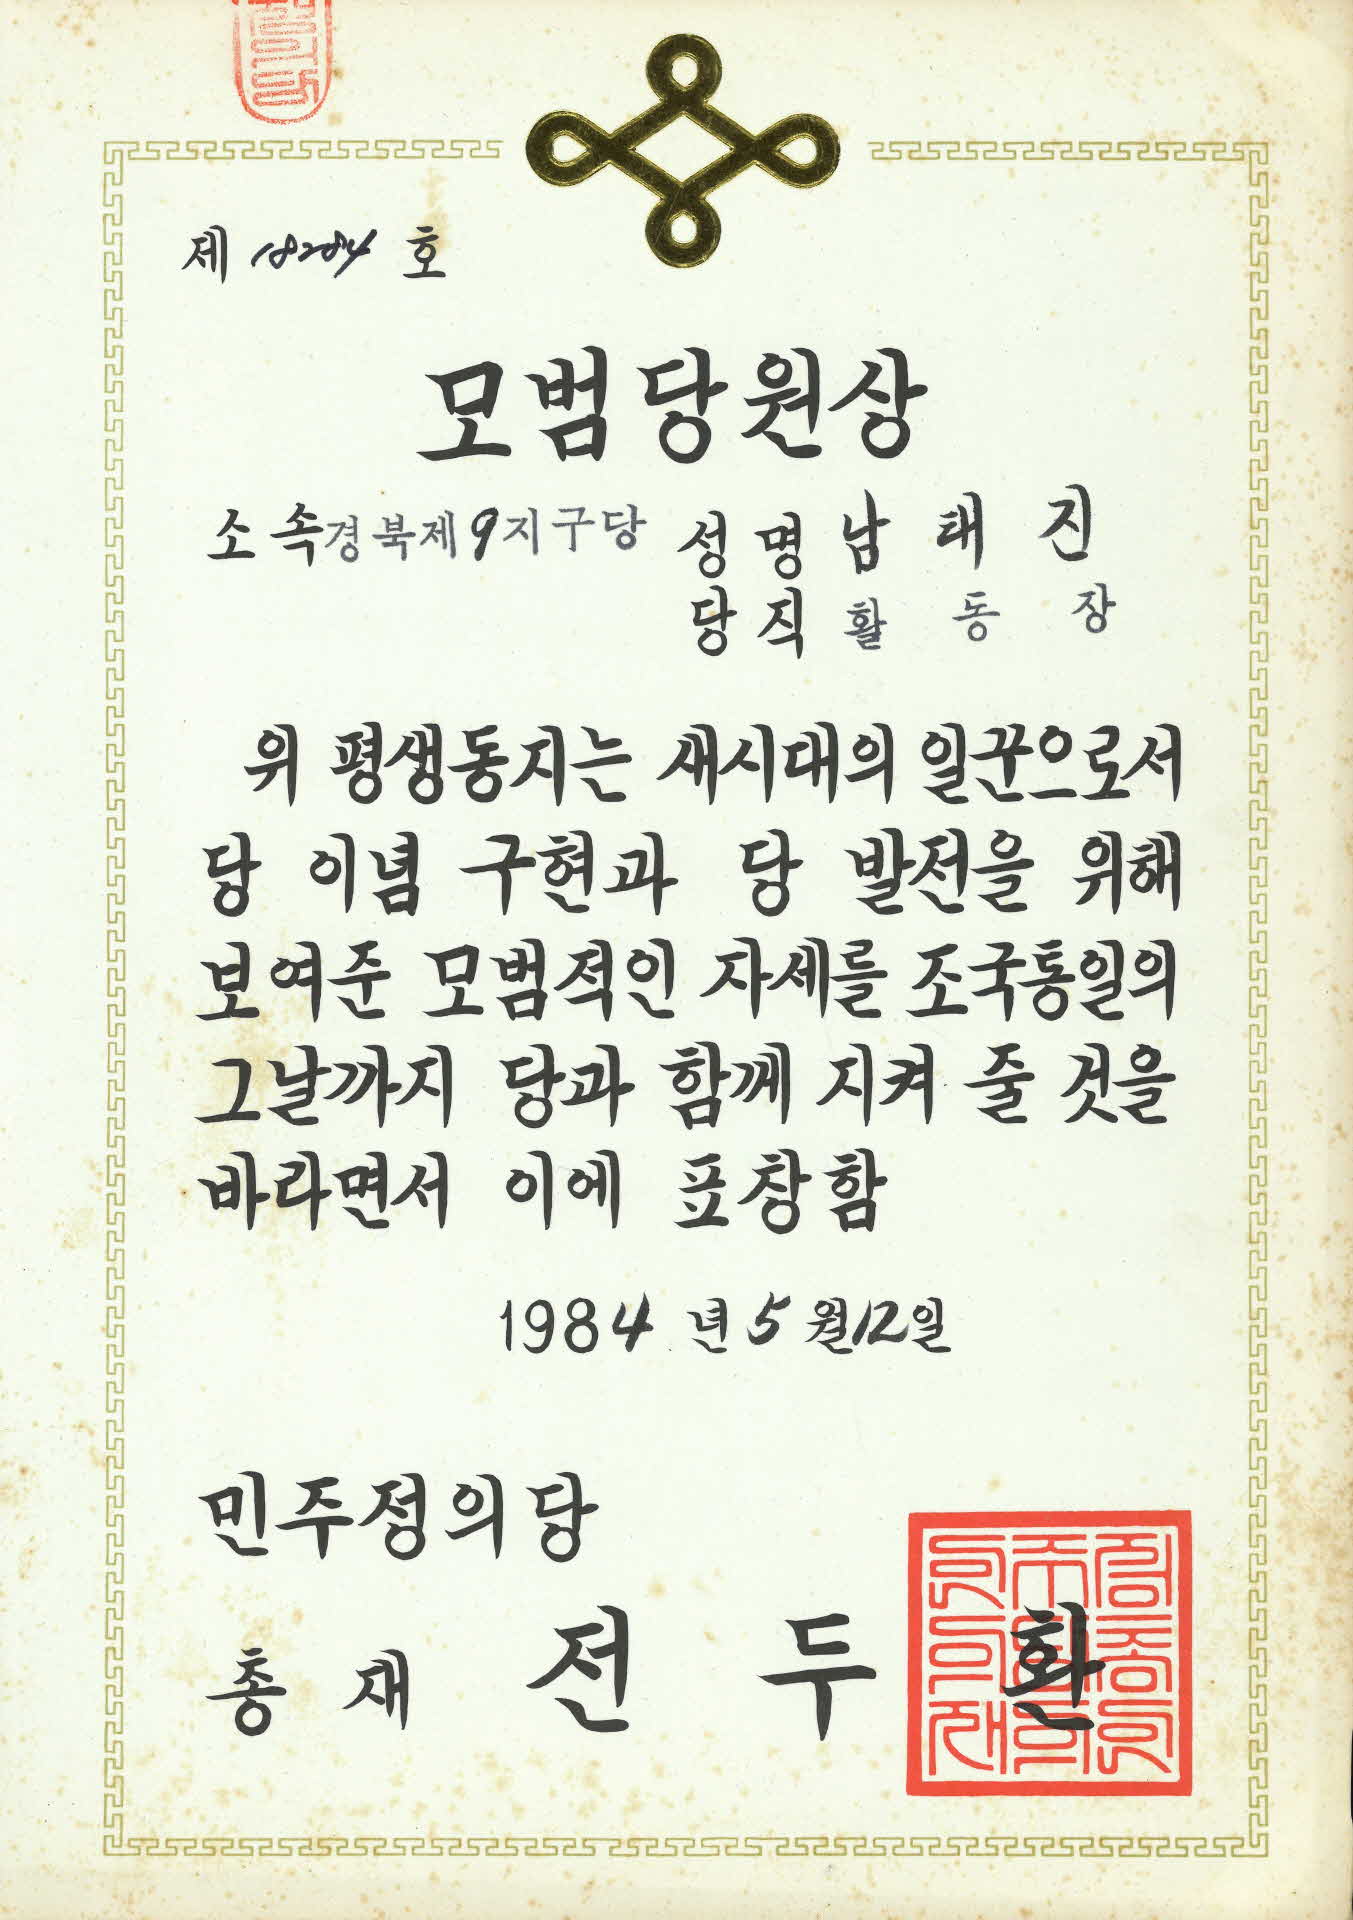 제 18284 호
모범당원상
소속 경북제9지구당 성명 남태진
당직 활동장
위 평생동지는 새시대의 일꾼으로서
당 이념 구현과 당 발전을 위해
보여준 모범적인 자세를 조국통일의
그날까지 당과 함께 지켜 줄 것을
바라면서 이에 표창함
1984년 5월 12일
민주정의당
총재 전두환